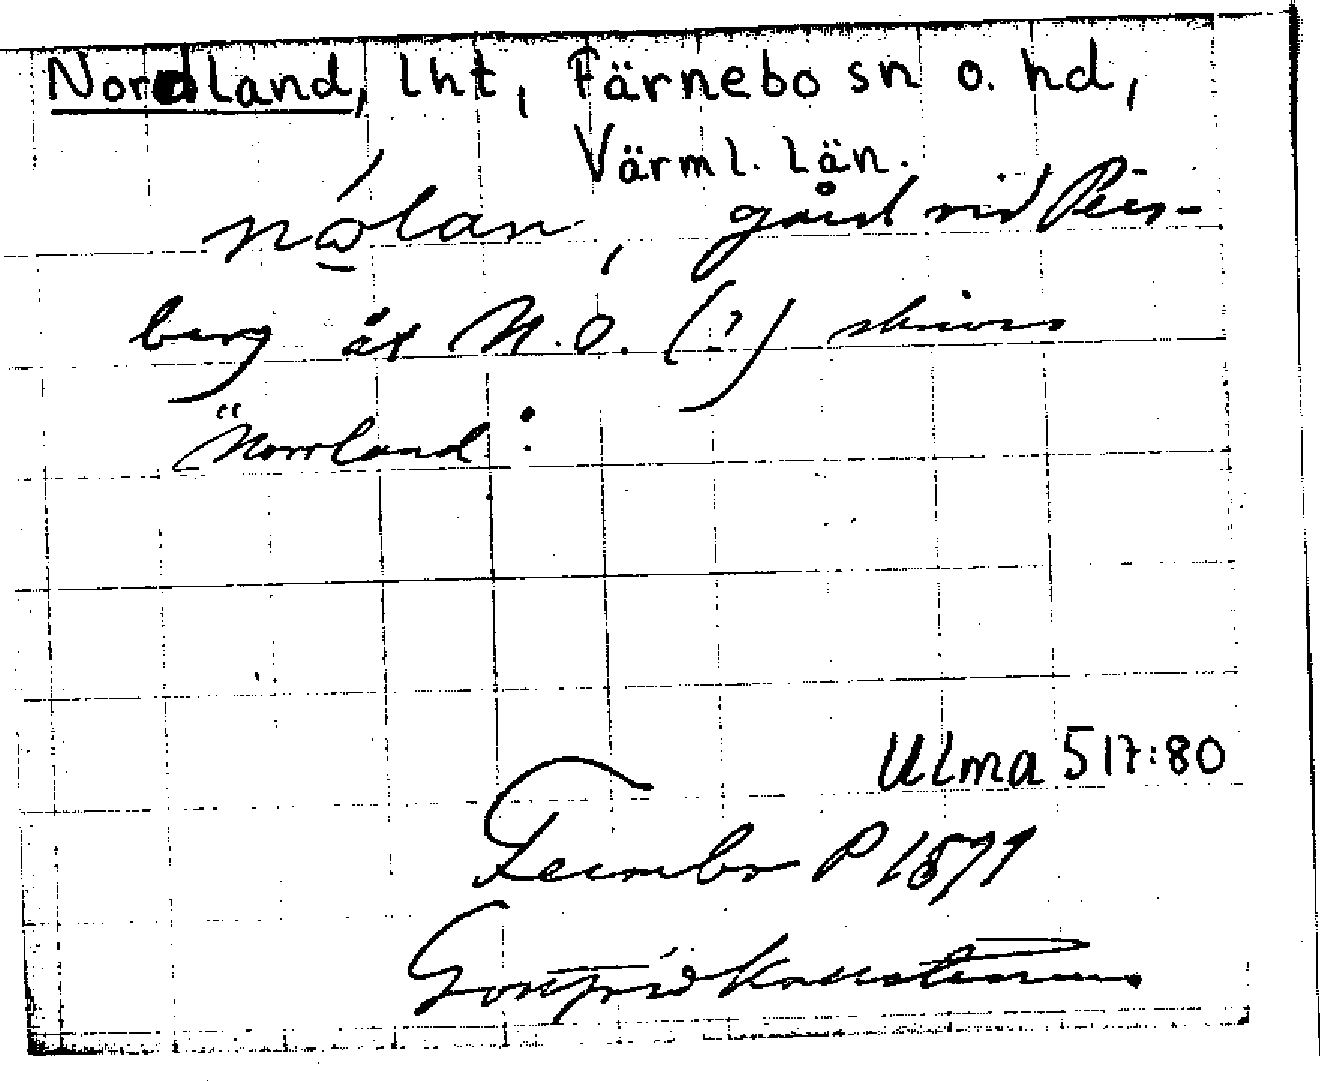 Nordland, lht, Färnebo sn o. hd,
Värml. län.
nǫ́lan, gård vid Pers-
berg åt N.O. (?) skrives
"Norrland":
Ulma 517:80
Fernebo P 1879
Gottfrid Kallstenius